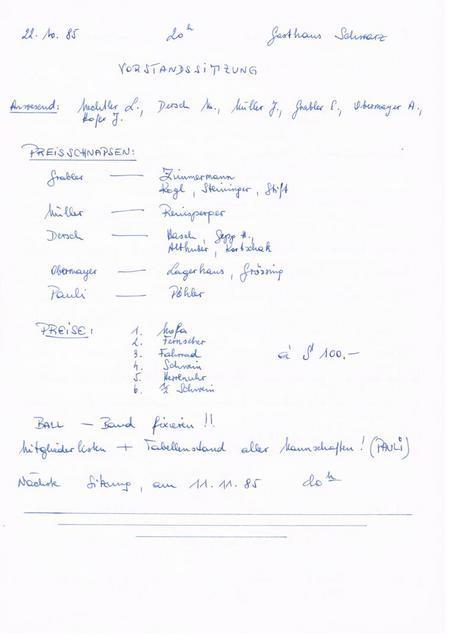 22.10.85 20h Gasthaus Schwarz
VORSTANDSSITZUNG
Anwesend: Mechtler L., Dersch M., Müller J., Grabler E., Obermayer A.,
Hofer J.
PREISSCHNAPSEN:
Grabler — Zimmermann
Kogl, Steininger, Stift
Müller — Renisperger
Dersch — Hasch, Sepp H.,
Althuber, Kortschak
Obermayer — Lagerhaus, Grössing
Pauli — Pöhler
PREISE: 1. Mofa
2. Fernseher
3. Fahrrad
4. Schwein
5. Herrenuhr
6. 1/2 Schwein
à S 100.–
BALL – Band fixieren !!
Mitgliederlisten + Tabellenstand aller Mannschaften! (PAULI)
Nächste Sitzung, am 11.11.85 20h